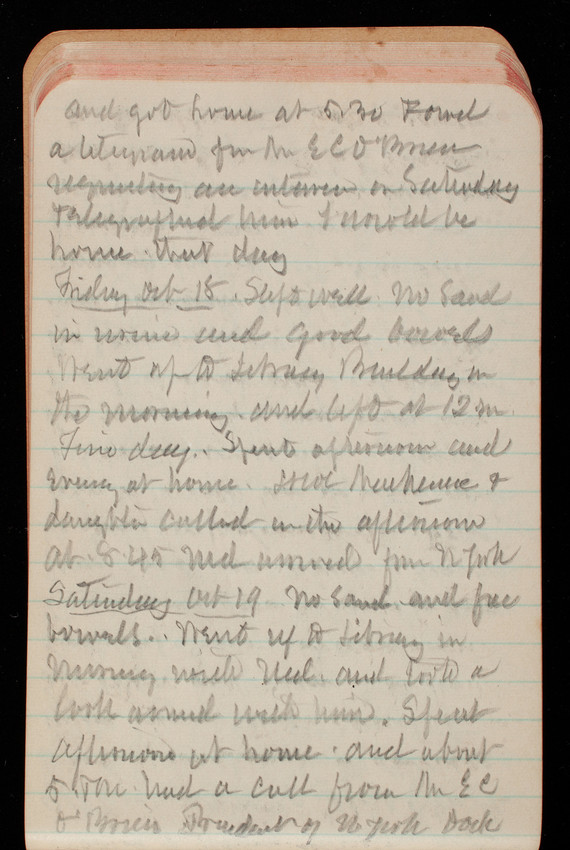 and got home at 5.30 Found
a telegram from Mr E C O'Brien
requesting an interview on Saturday
Telegraphed him I would be
home that day
Friday Oct 18. Slept well No Sand
in urine and good bowels
Went up to Library Building in
the morning and left at 12 m.
Fine day. Spent afternoon and
Evening at home. &
daughter called in the afternoon
at 8 45 Ned arrived from N York
Saturday Oct 19 No Sand and free
bowels. Went up to Library in
morning with Ned. and took a
look around with him. Spent
afternoon at home. and about
5 had a call from Mr E C
O'Brien President of N York Dock